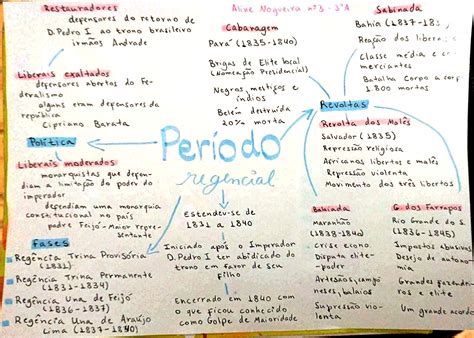 Aline Nogueira nº3 - 3ºA
Restauradores
defensores do retorno de
D. Pedro I ao trono brasileiro
irmãos Andrade
Liberais exaltados
defensores abertos do Fe-
deralismo
alguns eram defensores da
república
Cipriano Barata
Política
Liberais moderados
monarquistas que depen-
diam a limitação do poder do
imperador
dependiam uma monarquia
constitucional no país
padre Feijó - Maior repre-
sentante
Fases
Regência Trina Provisória
(1831)
Regência Trina Permanente
(1831-1834)
Regência Una de Feijó
(1836-1837)
Regência Una de Araújo
Lima (1837-1840)
Cabanagem
Pará (1835-1840)
Brigas de Elite local
(Nomeação Presidencial)
Negros, mestiços e
índios
Belém destruída
20% morta
Período
regencial
Estendeu-se de
1831 à 1840
Iniciado após o Imperador
D. Pedro I ter abdicado do
trono em favor de seu
filho
Encerrado em 1840 com
o que ficou conhecido
como Golpe de Maioridade
Sabinada
Bahia (1837-183
Reação dos liberais
Classe média e co
merciantes
Batalha Corpo a corp
1.800 mortos
Revoltas
Revolta dos Malês
Salvador (1835)
Repressão religiosa
Africanos libertos e malês
Repressão violenta
Movimento dos três libertos
Balaiada
Maranhão
(1838-1840)
Crise econo
Disputa elite-
poder
Artesãos, campo
neses, balaios
Supressão vio-
lenta
G. dos Farrapos
Rio Grande do S
(1836-1845)
Impostos abusivo
Desejo de autono-
mia
Grandes fazende
ros e elite
Um grande acordo